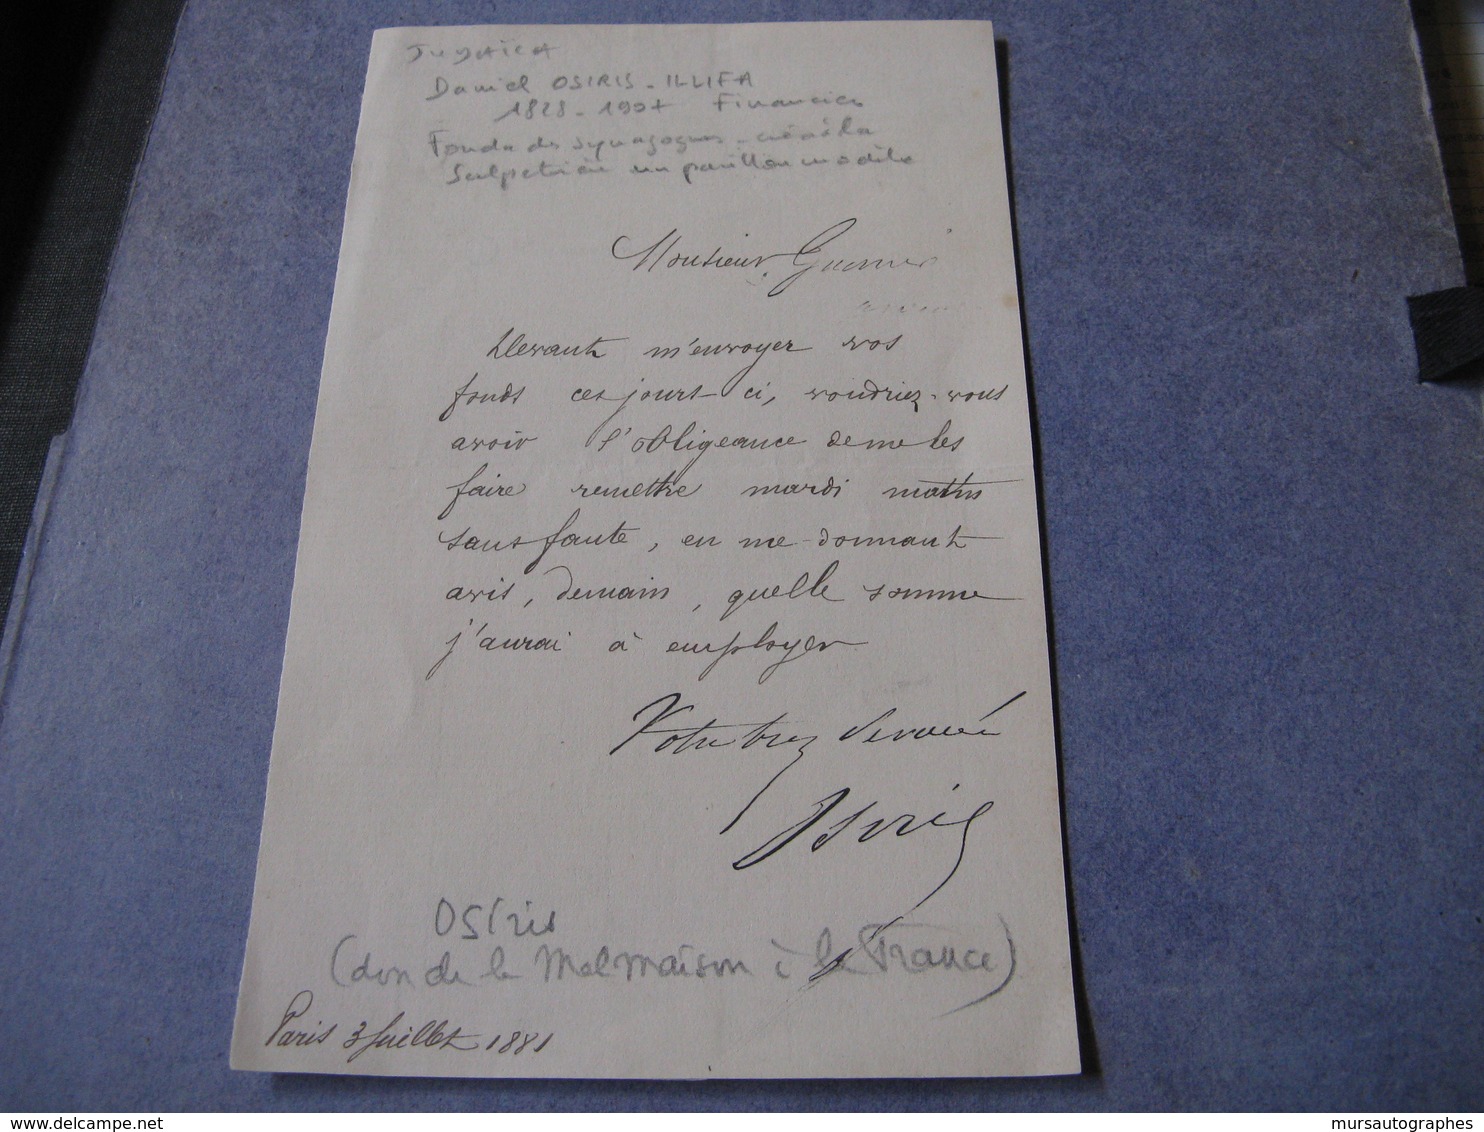 JUDAÏCA
Daniel OSIRIS - ILLIFA
1828 - 1907 Financier
Fonda des synagogues - créa à la
Salpetrière un pavillon modèle
Monsieur
Devant m'envoyer vos
fonds ces jours ci, voudriez-vous
avoir l'obligeance de me les
faire remettre mardi matin
sans faute, en me donnant
avis, demain, quelle somme
j'aurai à employer
Votre très dévoué
Osiris
OSIris
(don de la Malmaison à la France)
Paris 3 Juillet 1881
delcampe.net
mursautographes